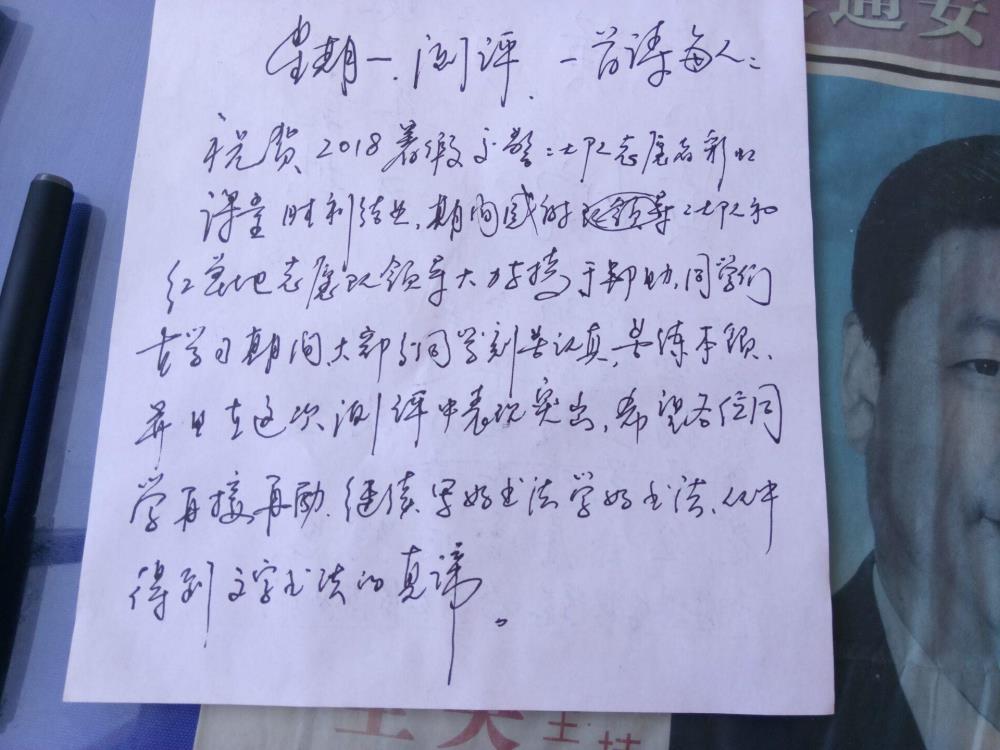 星期一.测评. 一首诗每人:
祝贺2018暑假交警二大队志愿者彩虹
课堂胜利结业,期间感谢 二大队和
红花地志愿队领导大力支持于帮助,同学们
在学习期间,大部分同学刻苦认真,苦练本领、
并且在这次测评中表现突出,希望各位同
学再接再励.继续写好书法学好书法,从中
得到文字书法的真谛。
通安